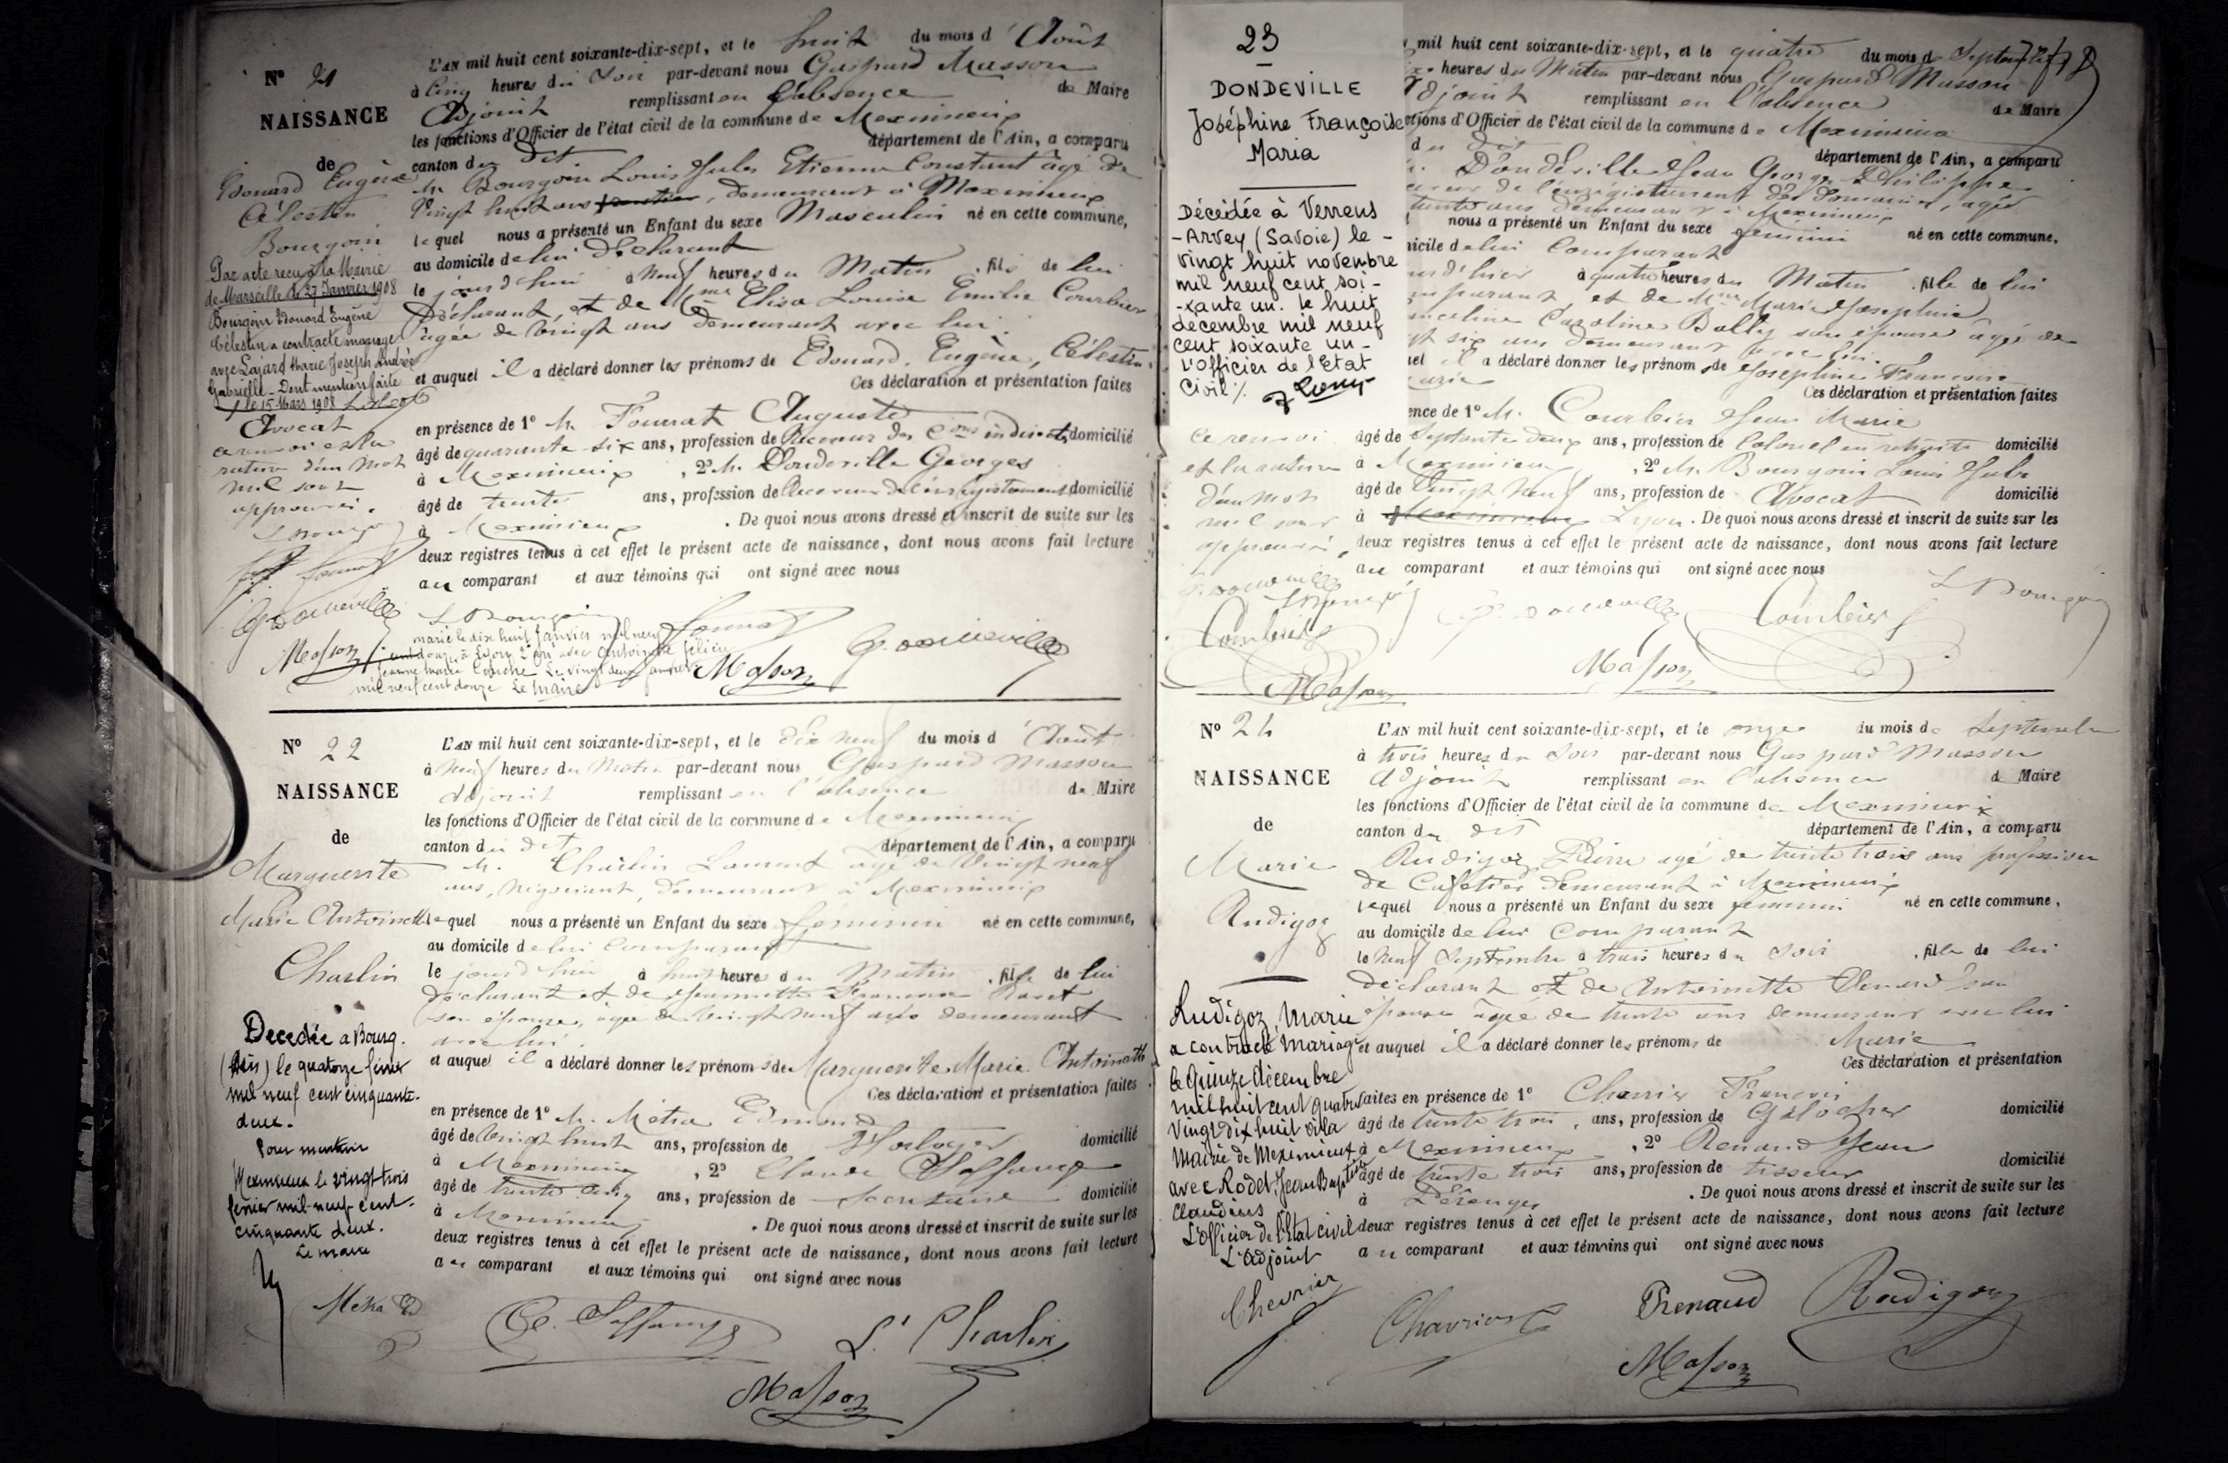 N° 21
NAISSANCE
de
Edouard Eugène
Célestin
Bourgoin
Par acte reçu à la Mairie
de Marseille le 27 Janvier 1908
Bourgoin Edouard Eugène
Célestin a contracté mariage
avec Lajard Marie Joseph Andrée
Gabrielle - Dont mention faite
le 15 Mars 1908
Avocat
ce renvoi et la
rature d'un mot
nul sont
approuvés.
L'AN mil huit cent soixante-dix-sept, et le huit du mois d'Août
à cinq heures du Soir par-devant nous Gaspard Masson
Adjoint remplissant en l'absence du Maire
les fonctions d'Officier de l'état civil de la commune de Meximieux
canton du dit département de l'Ain, a comparu
M. Bourgoin Louis Jules Etienne Constant âgé de
vingt huit ans, demeurant à Meximieux
lequel nous a présenté un Enfant du sexe Masculin né en cette commune,
au domicile de lui Déclarant
le jourd'hui à Neuf heures du Matin, fils de lui
Déclarant, et de Mme Elisa Louise Emilie Courbier
âgée de vingt ans demeurant avec lui.
et auquel il a déclaré donner les prénoms de Edouard, Eugène, Célestin.
Ces déclaration et présentation faites
en présence de 1° M. Fournat Auguste
âgé de quarante-six ans, profession de Receveur des indirects domicilié
à Meximieux, 2° M. Dondeville Georges
âgé de trente ans, profession de Receveur de l'enregistrement domicilié
à Meximieux. De quoi nous avons dressé et inscrit de suite sur les
deux registres tenus à cet effet le présent acte de naissance, dont nous avons fait lecture
au comparant et aux témoins qui ont signé avec nous
L Bourgoin
G. Dondeville
marié le dix huit Janvier mil neuf
cent douze à Lyon 2e arr avec Antoinette Félicie
Jeanne Marie Le vingt deux janvier
mil neuf cent douze Le Maire
Masson
Masson
G. Dondeville
N° 22
NAISSANCE
de
Marguerite
Marie Antoinette
Charlin
Decedée a Bourg.
(Ain) le quatorze février
mil neuf cent cinquante-
deux.
Pour mention
Meximieux le vingt trois
février mil neuf cent-
cinquante deux.
Le maire
L'AN mil huit cent soixante-dix-sept, et le dix neuf du mois d'Août
à Neuf heures du Matin par-devant nous Gaspard Masson
Adjoint remplissant en l'absence du Maire
les fonctions d'Officier de l'état civil de la commune de Meximieux
canton du dit département de l'Ain, a comparu
M. Charlin Laurent âgé de Vingt neuf
ans, négociant, demeurant à Meximieux
lequel nous a présenté un Enfant du sexe féminin né en cette commune,
au domicile de lui comparant
le jourd'hui à huit heures du Matin, fille de lui
déclarant et de Jeannette Françoise
son épouse, âgée de vingt neuf ans demeurant
avec lui.
et auquel il a déclaré donner les prénoms de Marguerite Marie Antoinette
Ces déclaration et présentation faites
en présence de 1° M. Métra Edmond
âgé de Vingt huit ans, profession de Horloger domicilié
à Meximieux, 2° Claude
âgé de trente cinq ans, profession de Secrétaire domicilié
à Meximieux. De quoi nous avons dressé et inscrit de suite sur les
deux registres tenus à cet effet le présent acte de naissance, dont nous avons fait lecture
au comparant et aux témoins qui ont signé avec nous
L. Charlin
Masson
23
DONDEVILLE
Joséphine Françoise
Maria
Décédée à Verrens
-Arvey (Savoie) le -
vingt huit novembre
mil neuf cent soi-
-xante un. le huit
décembre mil neuf
cent soixante un -
l'officier de l'Etat
Civil ./.
ce renvoi
et la rature
d'un mot
nul sont
approuvés,
mil huit cent soixante-dix-sept, et le quatre du mois de Septembre
heures du Matin par-devant nous Gaspard Masson
Adjoint remplissant en l'absence du Maire
ctions d'Officier de l'état civil de la commune de Meximieux
du dit département de l'Ain, a comparu
Dondeville Jean Georges Philippe
de l'enregistrement des Domaines, âgé
trente ans demeurant à Meximieux
nous a présenté un Enfant du sexe féminin né en cette commune,
icile de lui Comparant
d'hier à quatre heures du Matin, fille de lui
comparant, et de Mme Marie Joséphine
Caroline Bally son épouse âgée de
six ans demeurant avec lui.
uel il a déclaré donner les prénoms de Joséphine Françoise
Ces déclaration et présentation faites
ence de 1° M. Courbier Jean Marie
âgé de Septante deux ans, profession de Colonel en retraite domicilié
à Meximieux, 2° M. Bourgoin Louis Jules
âgé de Vingt huit ans, profession de Avocat domicilié
à Meximieux Lyon. De quoi nous avons dressé et inscrit de suite sur les
deux registres tenus à cet effet le présent acte de naissance, dont nous avons fait lecture
au comparant et aux témoins qui ont signé avec nous
Courbier
G. Dondeville
Courbier
L Bourgoin
Masson
Masson
N° 24
NAISSANCE
de
Marie
Rudigoz
Rudigoz, Marie
a contracté Mariage
le Quinze décembre
mil huit cent quatre
Vingt dix huit à la
Mairie de Meximieux
avec Rodet Jean Baptiste
Claudius
L'officier de l'Etat civil
L'adjoint
Chevrier
L'AN mil huit cent soixante-dix-sept, et le onze du mois de Septembre
à trois heures du Soir par-devant nous Gaspard Masson
Adjoint remplissant en l'absence du Maire
les fonctions d'Officier de l'état civil de la commune de Meximieux
canton du dit département de l'Ain, a comparu
Rudigoz Pierre agé de trente trois ans profession
de Cafetier demeurant à Meximieux
lequel nous a présenté un Enfant du sexe féminin né en cette commune,
au domicile de lui Comparant
le Neuf Septembre à trois heures du Soir, fille de lui
Déclarant et de Antoinette Renard son
épouse âgée de trente ans demeurant avec lui
et auquel il a déclaré donner les prénoms de Marie
Ces déclaration et présentation
faites en présence de 1° Charrier François
âgé de trente trois, ans, profession de Galocher domicilié
à Meximieux, 2° Renaud Jean
âgé de trente trois ans, profession de tisseur domicilié
à Pérouges. De quoi nous avons dressé et inscrit de suite sur les
deux registres tenus à cet effet le présent acte de naissance, dont nous avons fait lecture
au comparant et aux témoins qui ont signé avec nous
Renaud
Rudigoz
Masson